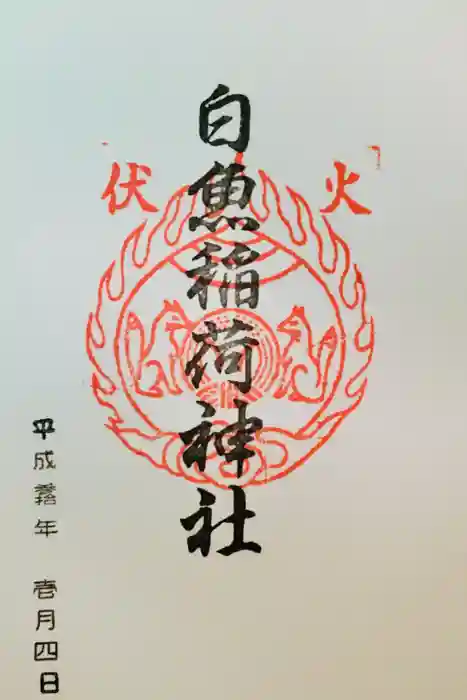 火伏
白魚稲荷神社
平成年 壱月四日